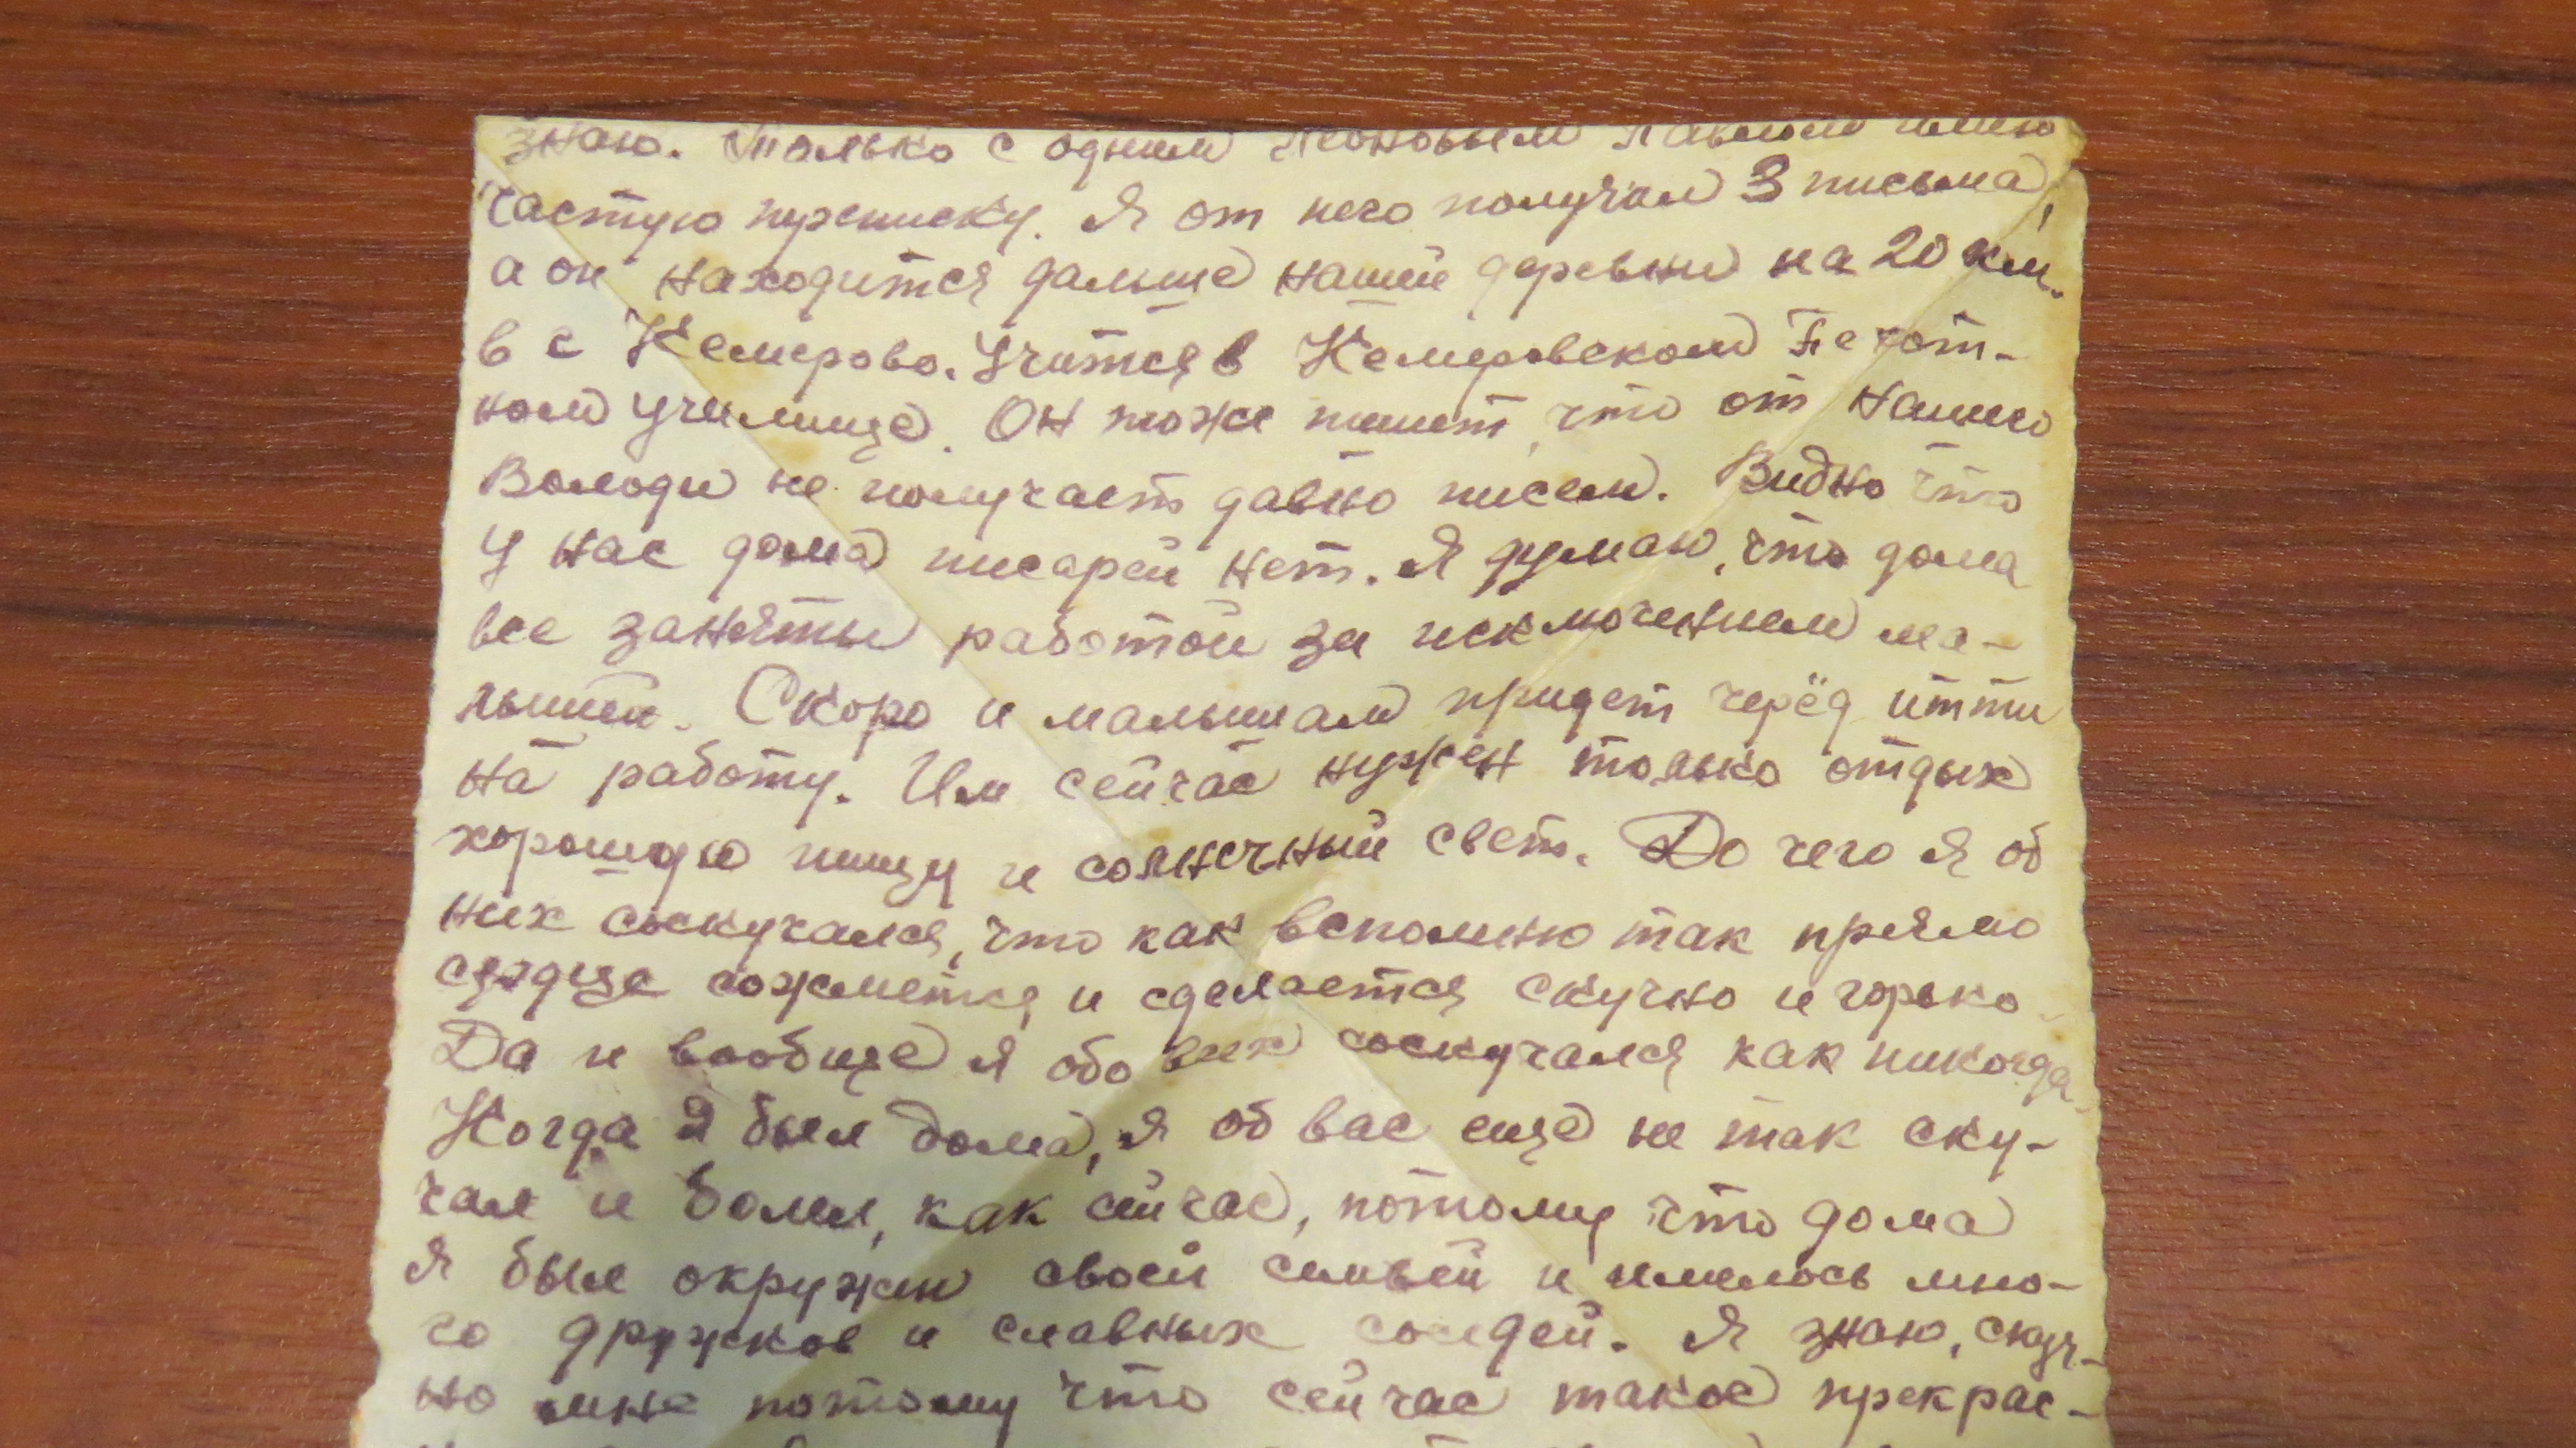 знаю. Только с одним Леоновым Павлом имею
частую переписку. Я от него получил 3 письма,
а он находится дальше нашей деревни на 20 км.
в с Кемерово. Учится в Кемеровском Пехот-
ном училище. Он тоже пишет, что от нашего
Володи не получает давно писем. Видно что
у нас дома писарей нет. Я думаю, что дома
все заняты работой за исключением ма-
лышей. Скоро и малышам придет черёд итти
на работу. Им сейчас нужен только отдых
хорошую пищу и солнечный свет. До чего я об
них соскучался, что как вспомню так прямо
сердце сожмется и сделается скучно и горько.
Да и вообще я обо всех соскучался как никогда.
Когда я был дома, я об вас ещё не так ску-
чал и болел, как сейчас, потому что дома
Я был окружен своей семьей и имелось мно-
го дружков и славных соседей. Я знаю, скуч-
но мне потому что сейчас такое прекрас-